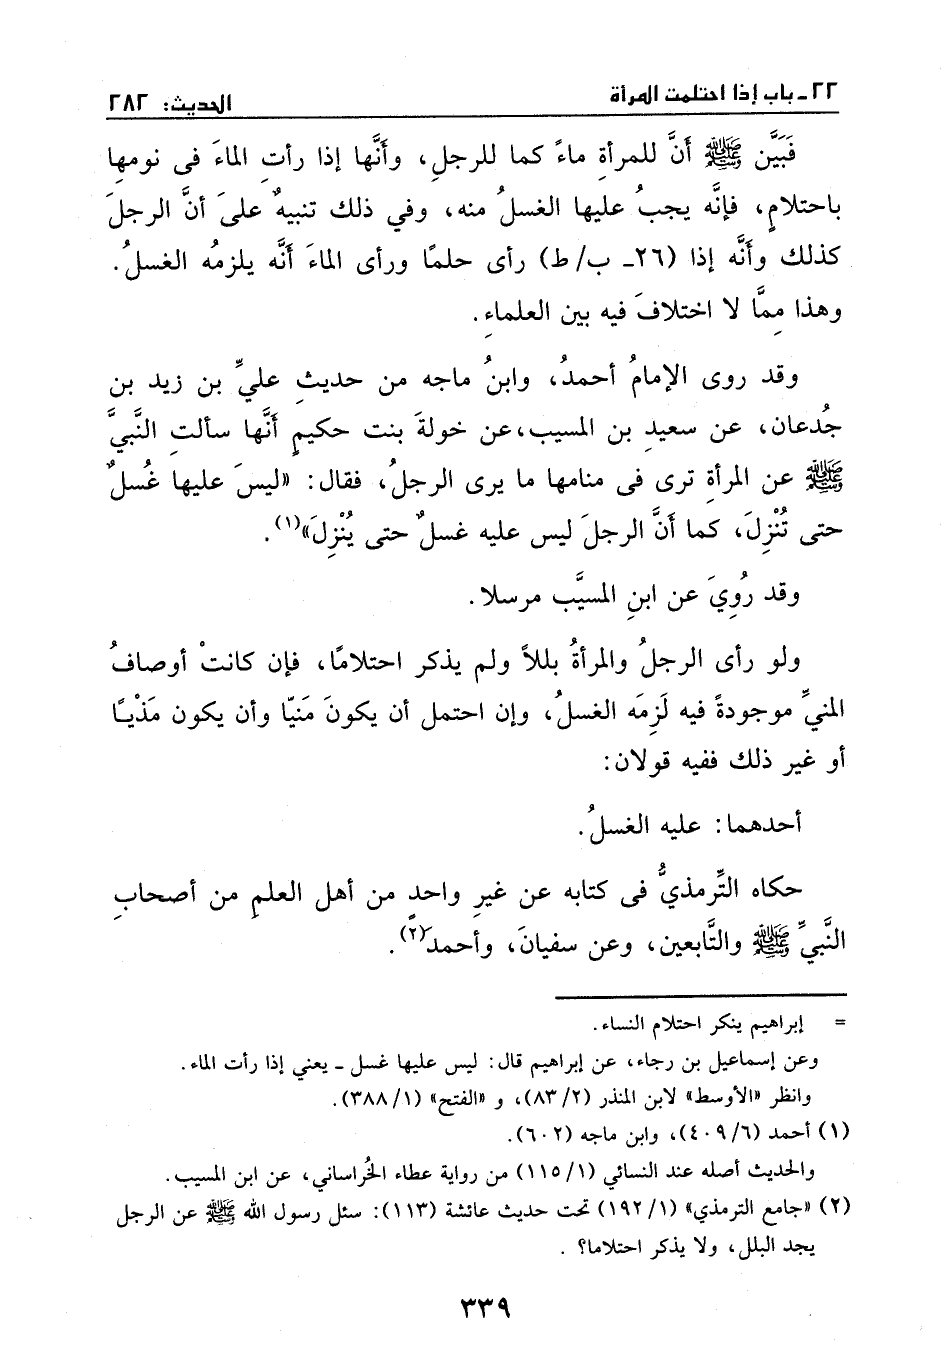 ٢٢ـ باب إذا احتلمت المرأة
الحديث: ٢٨٢
فَبَيَّن ﷺ أنَّ للمرأةِ ماءً كما للرجلِ، وأنَّها إذا رأتِ الماءَ فى نومِها
باحتلامٍ، فإنَّه يجبُ عليها الغسلُ منه، وفي ذلك تنبيهٌ علىَ أنَّ الرجلَ
كذلك وأنَّه إذا (٢٦ـ ب/ط) رأى حلمًا ورأى الماءَ أنَّه يلزمُه الغسلُ.
وهذا مِمَّا لا اختلافَ فيه بين العلماءِ.
وقد روى الإمامُ أحمدُ، وابنُ ماجه من حديثِ عليِّ بن زيد بن
جُدعان، عن سعيدِ بن المسيب،عن خولةَ بنت حكيمٍ أنَّها سألتِ النَّبيَّ
ﷺ عن المرأةِ ترى فى منامها ما يرى الرجلُ، فقال: «ليسَ عليها غُسلٌ
حتى تُنْزِلَ، كما أنَّ الرجلَ ليس عليه غسلٌ حتى يُنْزِلَ»(١).
وقد رُوِيَ عن ابنِ المسيَّب مرسلا.
ولو رأى الرجلُ والمرأةُ بللاً ولم يذكر احتلامًا، فإن كانتْ أوصافُ
المنيِّ موجودةً فيه لَزِمَه الغسلُ، وإن احتمل أن يكونَ مَنيّا وأن يكون مَذْيًا
أو غير ذلك ففيه قولان:
أحدهما: عليه الغسلُ.
حكاه التِّرمذيُّ فى كتابه عن غيرِ واحدٍ من أهل العلمِ من أصحابِ
النَّبيِّ ﷺ والتَّابعين، وعن سفيانَ، وأحمدَ(٢).
= إبراهيم ينكر احتلام النساء.
وعن إسماعيل بن رجاء، عن إبراهيم قال: ليس عليها غسل ـ يعني إذا رأت الماء.
وانظر «الأوسط» لابن المنذر (٢/ ٨٣)، و «الفتح» (١/ ٣٨٨).
(١) أحمد (٦/ ٤٠٩)، وابن ماجه (٦٠٢).
والحديث أصله عند النسائي (١/ ١١٥) من رواية عطاء الخُراساني، عن ابن المسيب.
(٢) «جامع الترمذي» (١/ ١٩٢) تحت حديث عائشة (١١٣): سئل رسول الله ﷺ عن الرجل
يجد البلل، ولا يذكر احتلاما؟ .
٣٣٩